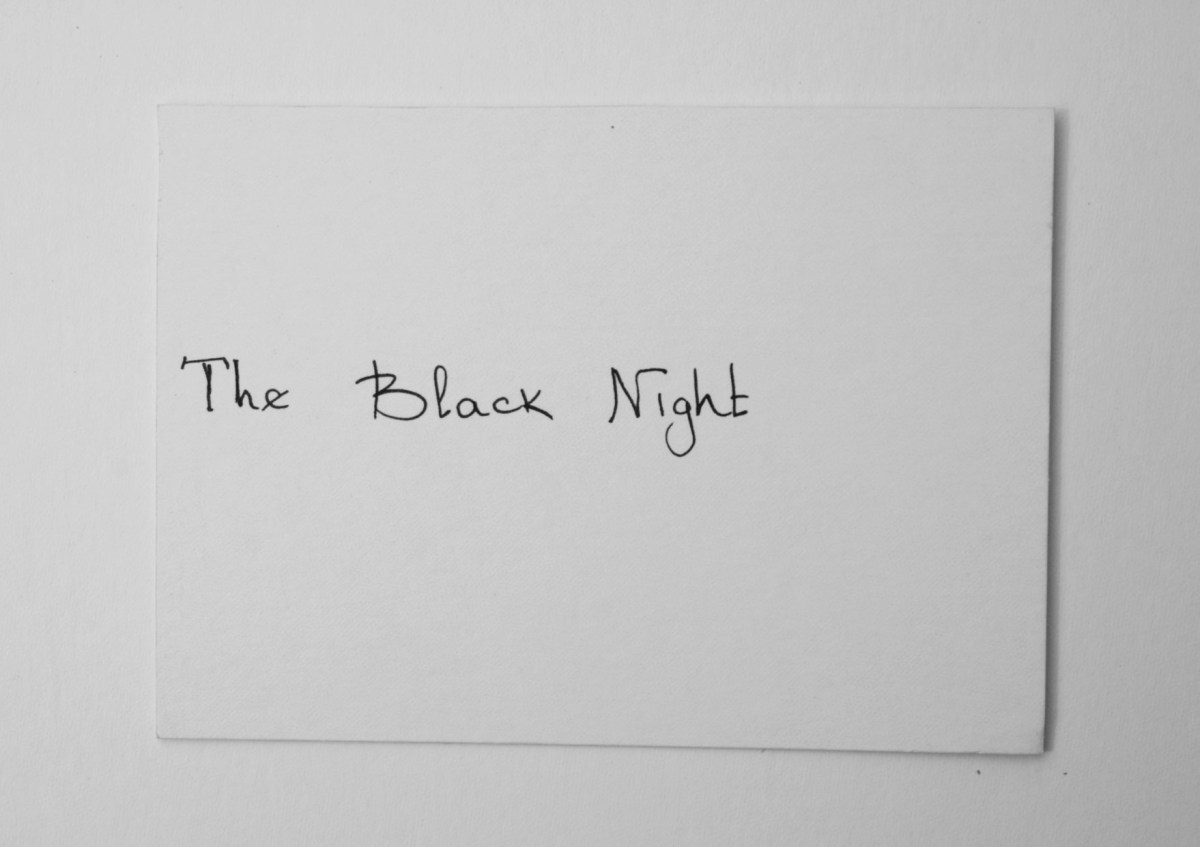 The Black Night